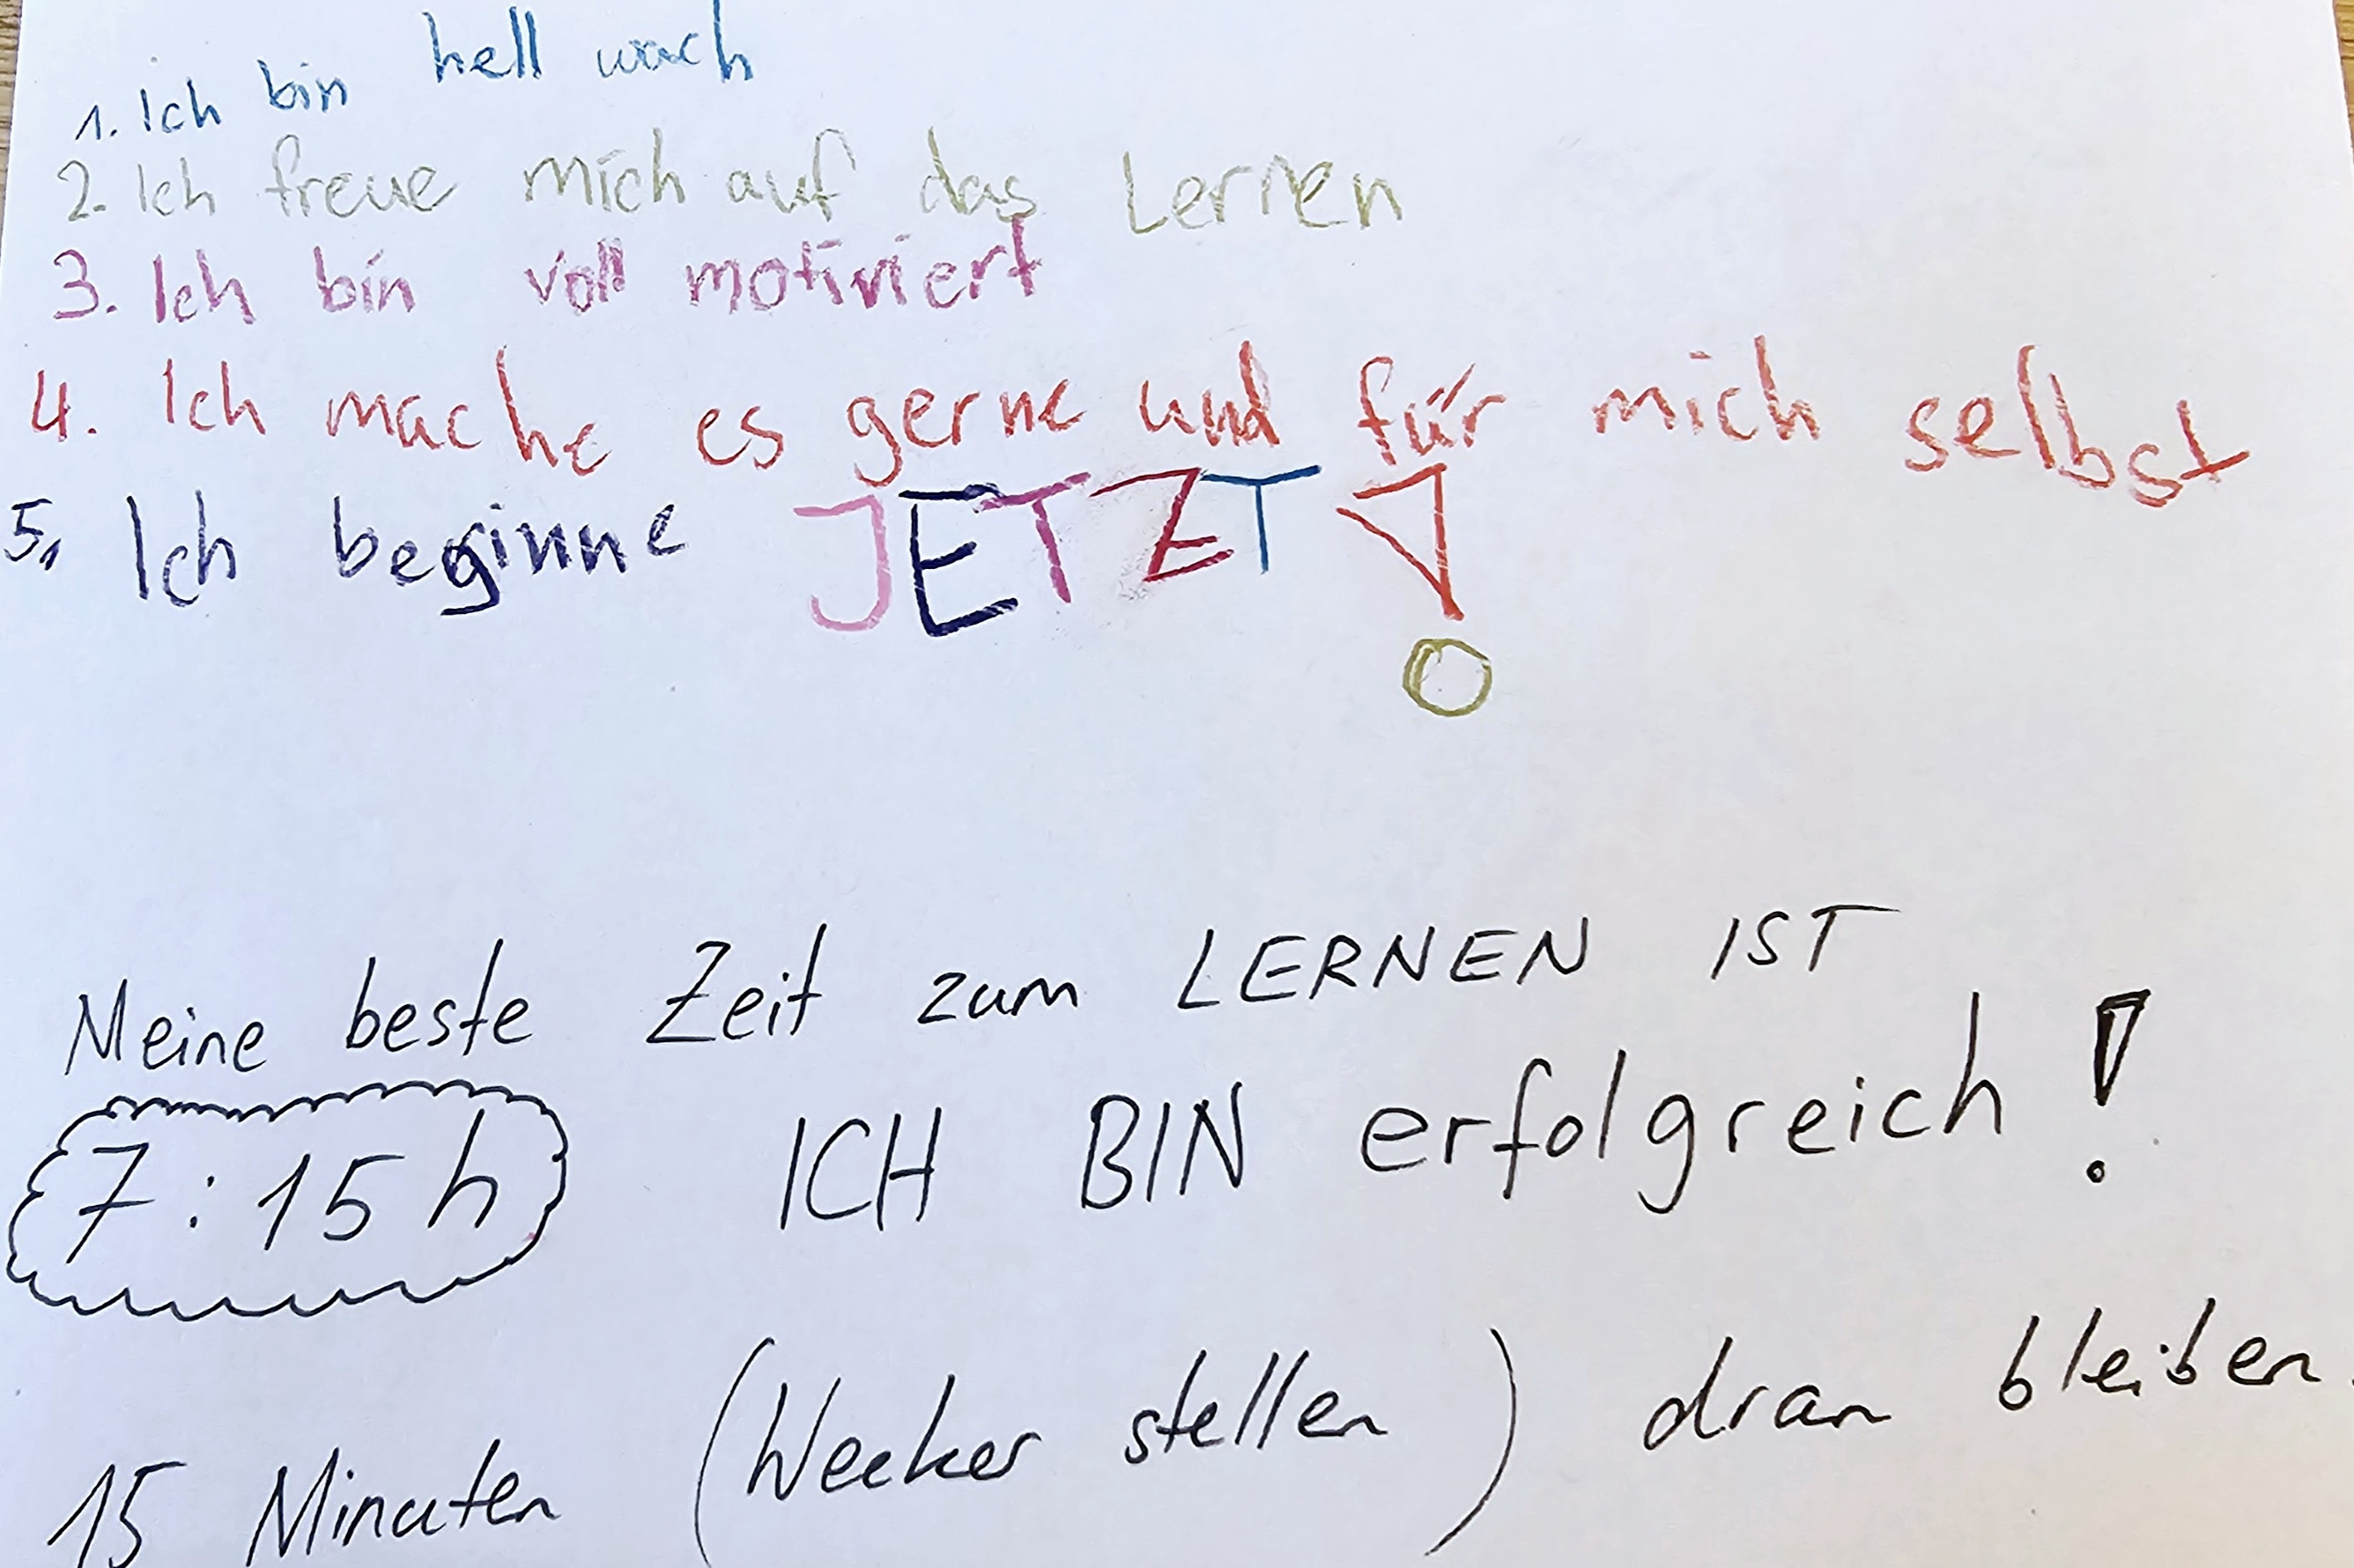 1. Ich bin hell wach
2. Ich freue mich auf das Lernen
3. Ich bin voll motiviert
4. Ich mache es gerne und für mich selbst
5. Ich beginne JETZT!
Meine beste Zeit zum LERNEN IST
7:15 h ICH BIN erfolgreich!
15 Minuten (Wecker stellen) dran bleiben.